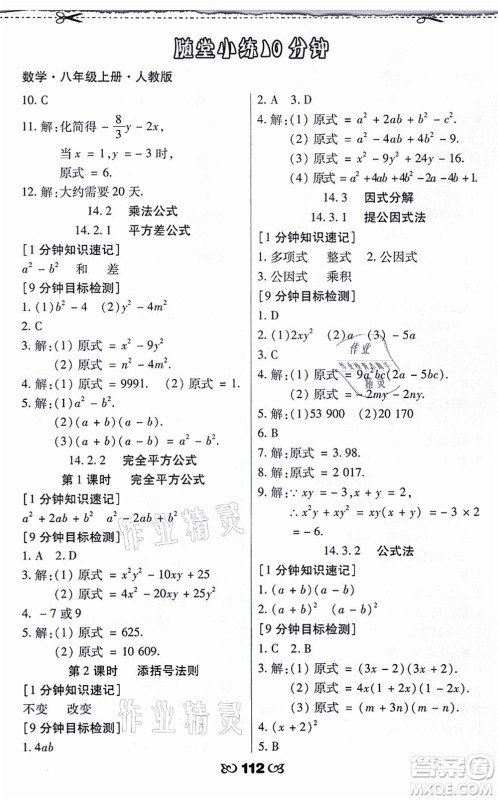 随堂小练10分钟
数学·八年级上册·人教版
10. C
11. 解:化简得 -8/3y - 2x,
当 x = 1, y = -3 时,
原式 = 6.
12. 解:大约需要 20 天.
14.2 乘法公式
14.2.1 平方差公式
[1 分钟知识速记]
a² - b² 和 差
[9 分钟目标检测]
1. (1)b² - 4 (2)y² - 4m²
2. C
3. 解:(1) 原式 = x² - 9y²
(2) 原式 = a² - b².
4. 解:(1) 原式 = 9991. (2) 原式 = 1.
5. 解:(1)a² - b².
(2) (a + b)(a - b)
(3) (a + b)(a - b)
14.2.2 完全平方公式
第 1 课时 完全平方公式
[1 分钟知识速记]
a² + 2ab + b² a² - 2ab + b²
[9 分钟目标检测]
1. A 2. D
3. 解:(1) 原式 = x²y² - 10xy + 25
(2) 原式 = x⁴ + 2x² + 1.
4. -7 或9
5. 解:(1) 原式 = 625.
(2) 原式 = 10 609.
第 2 课时 添括号法则
[1 分钟知识速记]
不变 改变
[9 分钟目标检测]
1. 4ab
2. A 3. D
4. 解:(1) 原式 = a² + 2ab + b² - 4
(2) 原式 = a² - 4a + 4 - 9b²
(3) 原式 = x² - 9y² + 6y - 1.
(4) 原式 = a² + b² + 4 - 2ab - 4a + 4b.
14.3 因式分解
14.3.1 提公因式法
[1 分钟知识速记]
1. 多项式 整式 2. 公因式
3. 公因式 乘积
[9 分钟目标检测]
1. D
2. (1)2xy² (2)a (3) - 5a
3. C
4. 解:(1) 原式 = 9a²bc(2a - 5bc).
(2) 原式 = -2my - 2ny.
5. (1)53 900 (2)20 170
6. B
7. 解:原式 = 3. 98.
8. 解:原式 = 2 017.
9. 解:∵ xy = -3, x + y = 2
∴ x²y + xy² = xy(x + y) = -3 × 2
= -6.
14.3.2 公式法
[1 分钟知识速记]
1. (a + b)(a - b)
2. (a + b)² (a - b)²
[9 分钟目标检测]
1. C 2. B
3. 解:(1) 原式 = (3x - 2)(3x + 2).
(2) 原式 = 4x(1 + 2x)(1 - 2x).
4. (x + 2)²
5. B
112
作业精灵
作业精灵
作业
精灵
答案圈
MXQE.COM